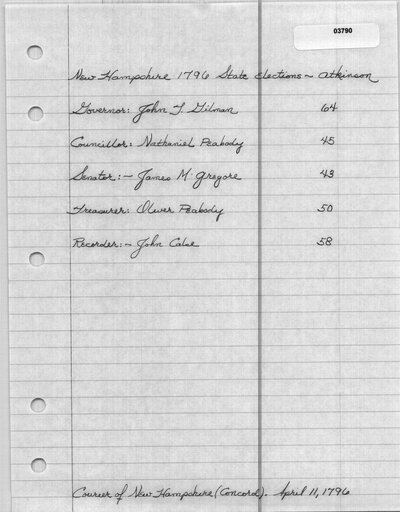 03790
New Hampshire 1796 State Elections ~ Atkinson
Governor: John T. Gilman 64
Councillor: Nathaniel Peabody 45
Senator: - James McGregore 43
Treasurer: Oliver Peabody 50
Recorder: - John Calse 58
Courier of New Hampshire (Concord). April 11, 1796